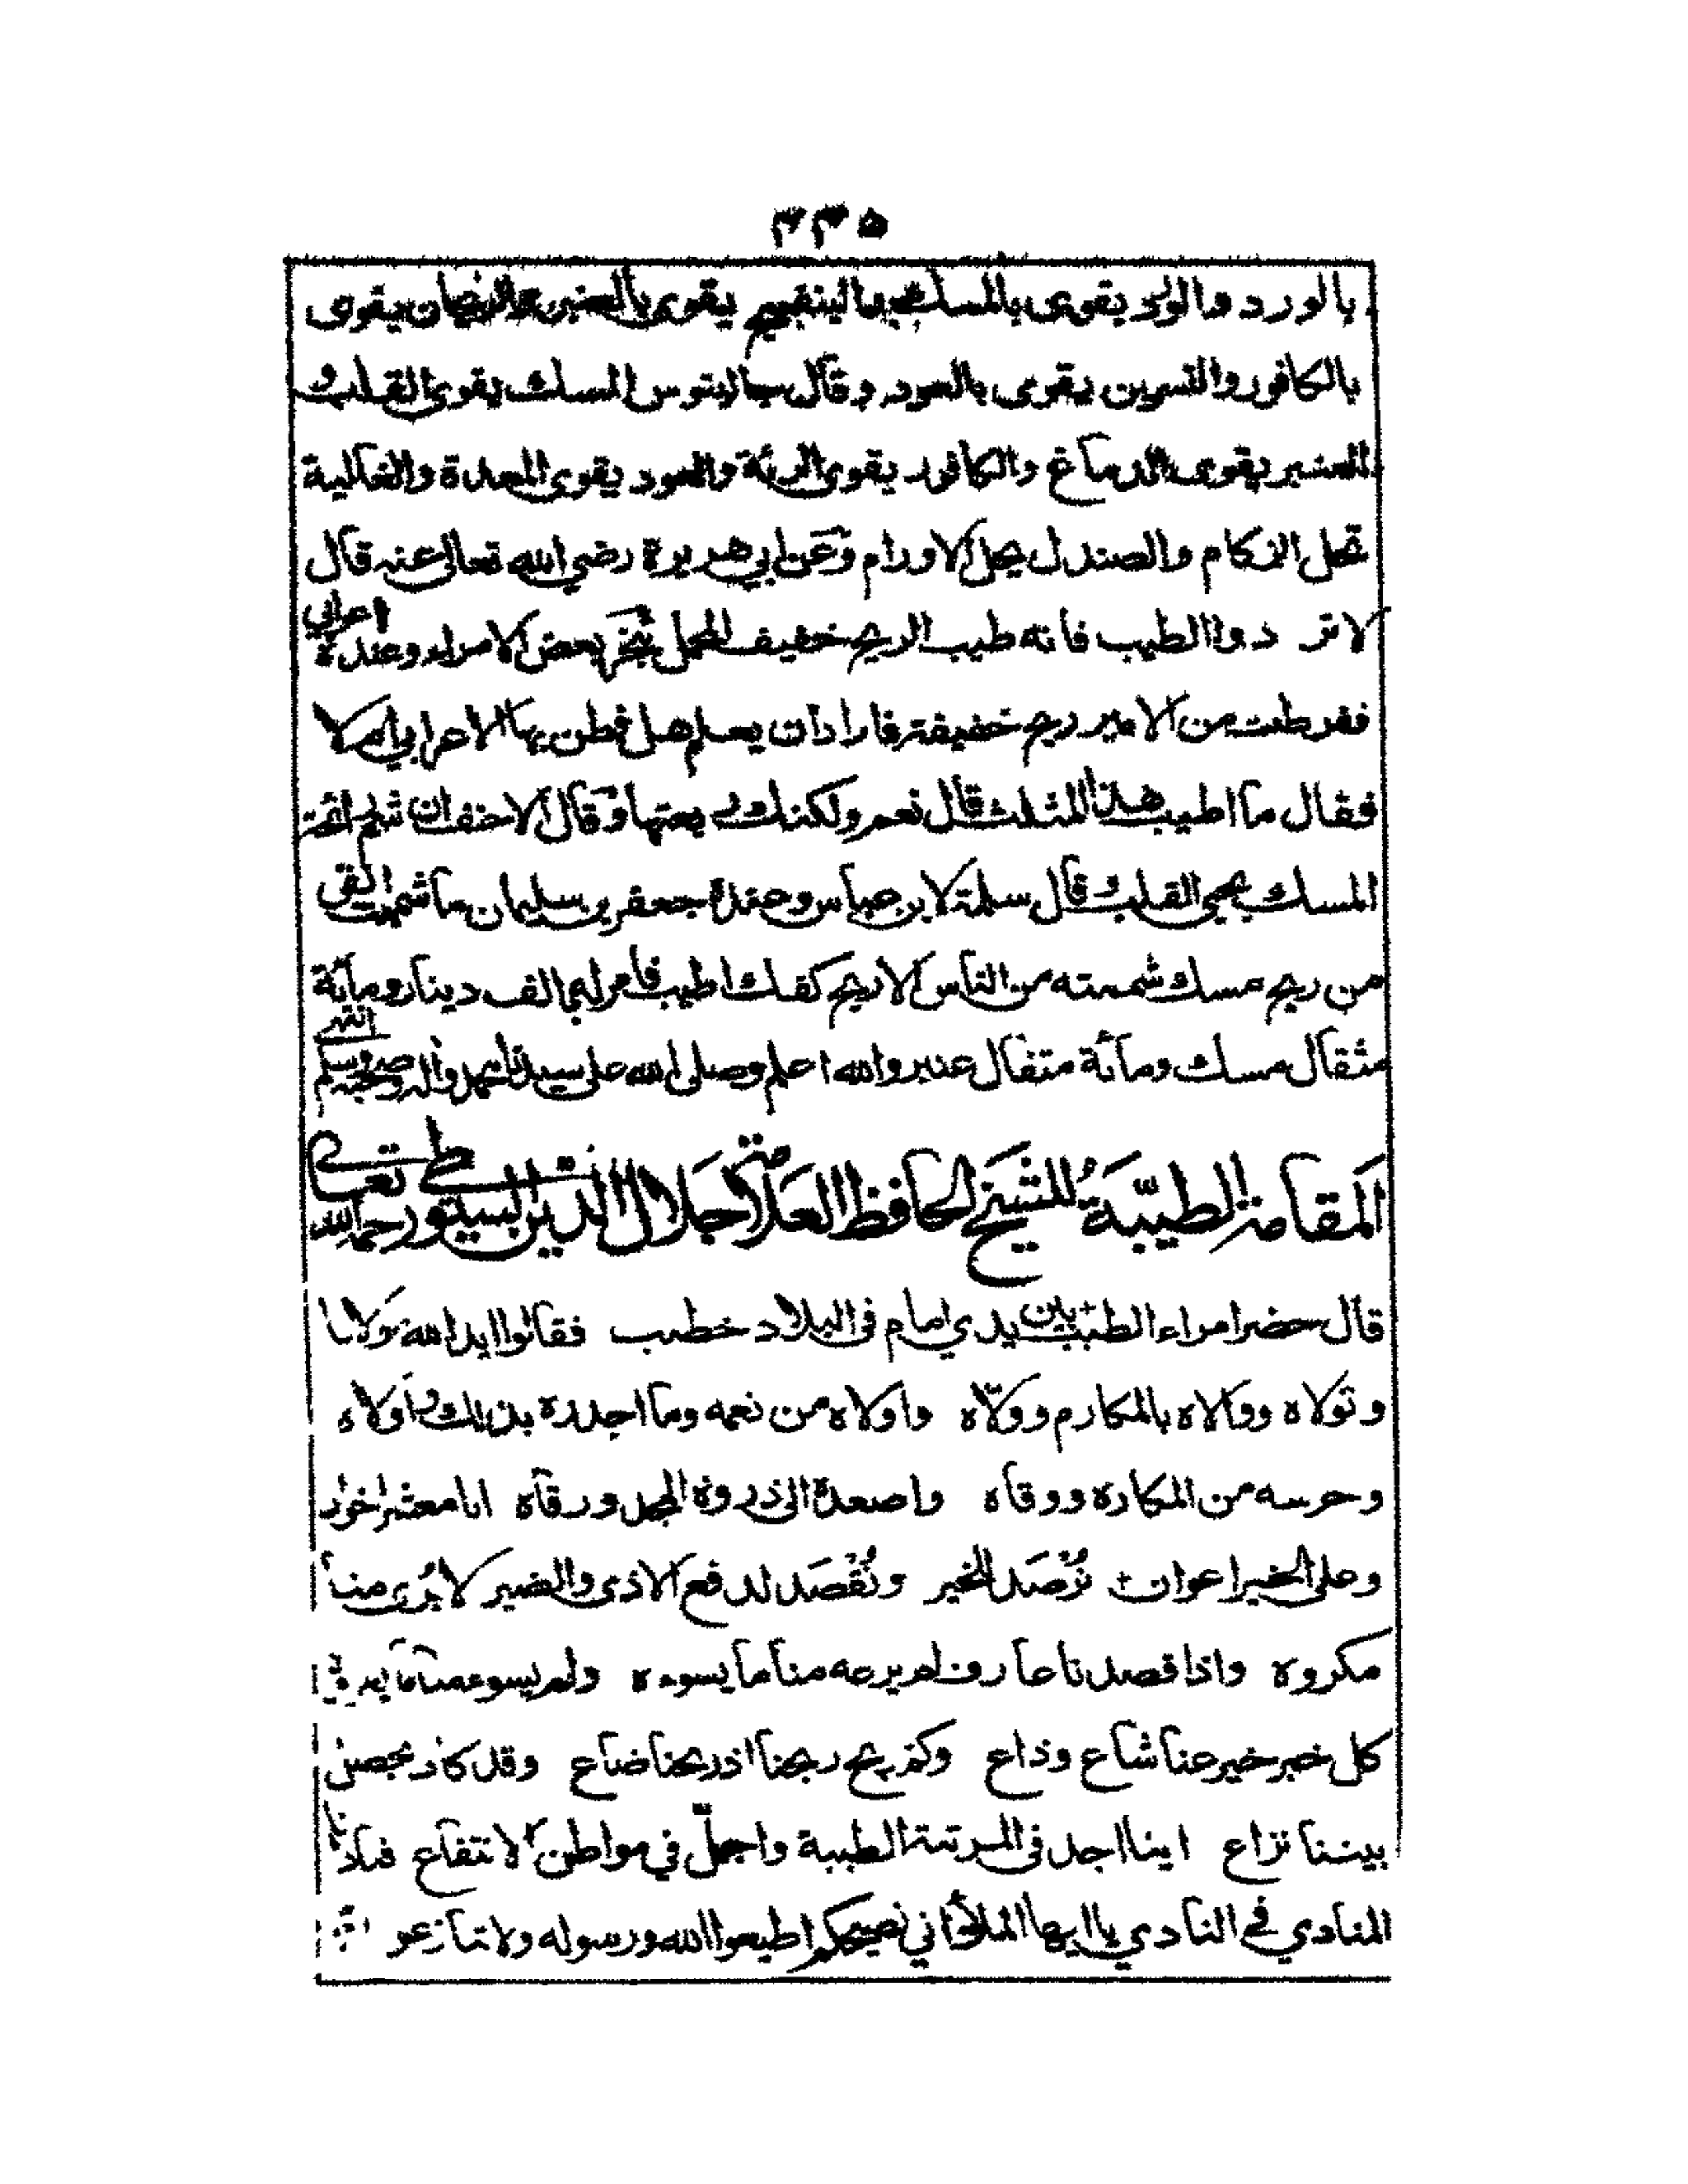 ٣٣٥
بالورد والورد يقوى بالمسك والبنفسج يقوى بالعنبر والريحان يقوى
بالكافور والنسرين يقوى بالعود وقال جالينوس المسك يقوى القلب و
العنبر يقوى الدماغ والكافور يقوى الرئة والعود يقوى المعدة والغالية
تحل الزكام والصندل يحل الاورام وعن ابي هريرة رضي الله تعالى عنه قال
لا تردوا الطيب فانه طيب الريح خفيف المحمل تبخر بعض الامراء وعنده اعرابي
ففرطت من الامير ريح خفيفة فاراد ان يعلم هل فطن بها الاعرابي ام لا
فقال ما اطيب هذا المثلث قال نعم ولكنك ربعتها وقال الاحنف ان شم رائحة
المسك يحيى القلب و قال سلمة لابن عباس وعنده جعفر بن سليمان ما شممت القى
من ريح مسك شممته من الناس الا ريح كفك اطيب فامر له بالف دينار ومائة
مثقال مسك ومائة مثقال عنبر والله اعلم وصلى الله على سيدنا محمد واله وصحبه وسلم انتهى
المقامة الطيبة للشيخ الحافظ العلامة جلال الدين السيوطي رحمه الله تعالى
قال حضر امراء الطيب بين يدي امام في البلاد خطيب فقالوا ايد الله مولانا
وتولاه ووالاه بالمكارم وولاه واولاه من نعمه وما اجدره بذلك واولاه
وحرسه من المكاره ووقاه واصعده الى ذروة المجد ورقاه انا معشر اخوان
وعلى الخير اعوان نُرْصَد للخير ونُقْصَد لدفع الاذى والضير لا يُرى منا
مكروه واذا قصدنا عارف لم يرعه منا ما يسوءه ولم يسوعه منا ما يعروه
كل خبر خير عنا شاع وذاع وكم ريح ربحنا اذ ريحنا ضاع وقد كاد يحصل
بيننا نزاع اينا اجل فى المرتبة الطيبة واجلّ في مواطن الانتفاع فنادانا
المنادي في النادي يا ايها الملأ اني نصيحكم اطيعوا الله ورسوله ولا تنازعوا